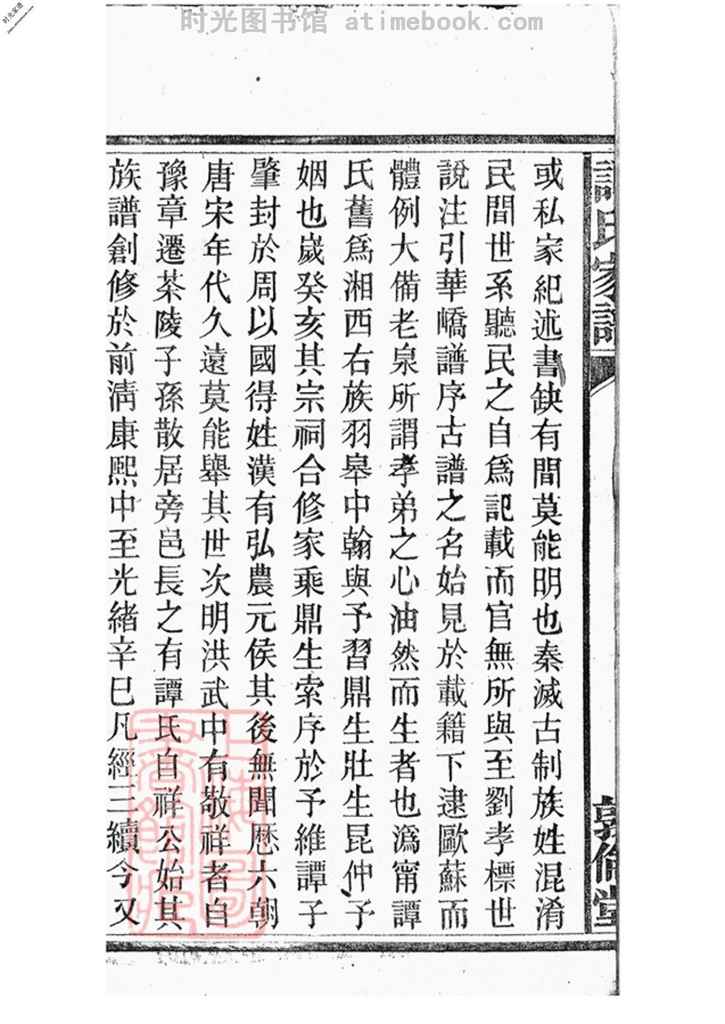 时光图书馆 atimebook.com
譚氏家譜
敦倫堂
或私家紀述書缺有間莫能明也秦滅古制族姓混淆
民間世系聽民之自爲記載而官無所與至劉孝標世
說注引華嶠譜序古譜之名始見於載籍下逮歐蘇而
體例大備老泉所謂孝弟之心油然而生者也潙甯譚
氏舊爲湘西右族羽皋中翰與予習鼎生壯生昆仲予
姻也嵗癸亥其宗祠合修家乘鼎生索序於予維譚子
肇封於周以國得姓漢有弘農元侯其後無聞厯六朝
唐宋年代久遠莫能舉其世次明洪武中有敬祥者自
豫章遷茶陵子孫散居旁邑長之有譚氏自祥公始其
族譜創修於前淸康熙中至光緒辛巳凡經三續今又